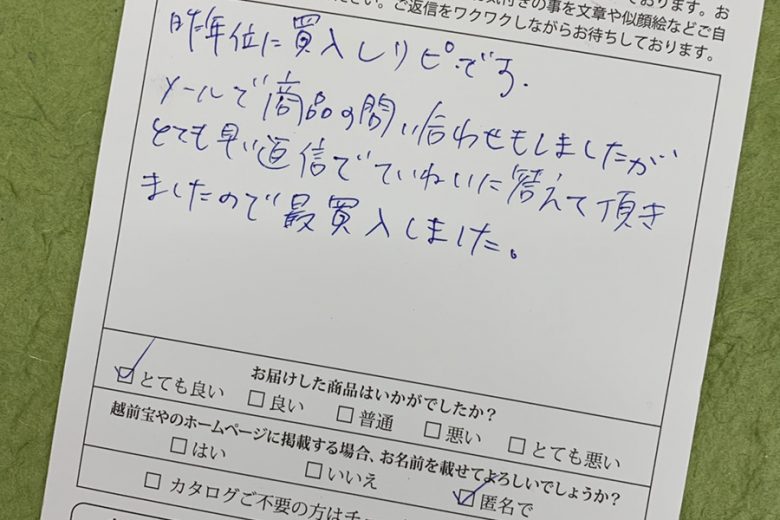 付きの事を文章や似顔絵などご自
ださい。ご返信をワクワクしながらお待ちしております。
昨年位に買入しリピです.
メールで商品の問い合わせもしましたが
とても早い返信でていねいに答えて頂き
ましたので最買入しました。
お届けした商品はいかがでしたか?
☑とても良い □良い □普通 □悪い □とても悪い
越前宝やのホームページに掲載する場合、お名前を載せてよろしいでしょうか?
□はい □いいえ ☑匿名で
□カタログご不要の方はチ